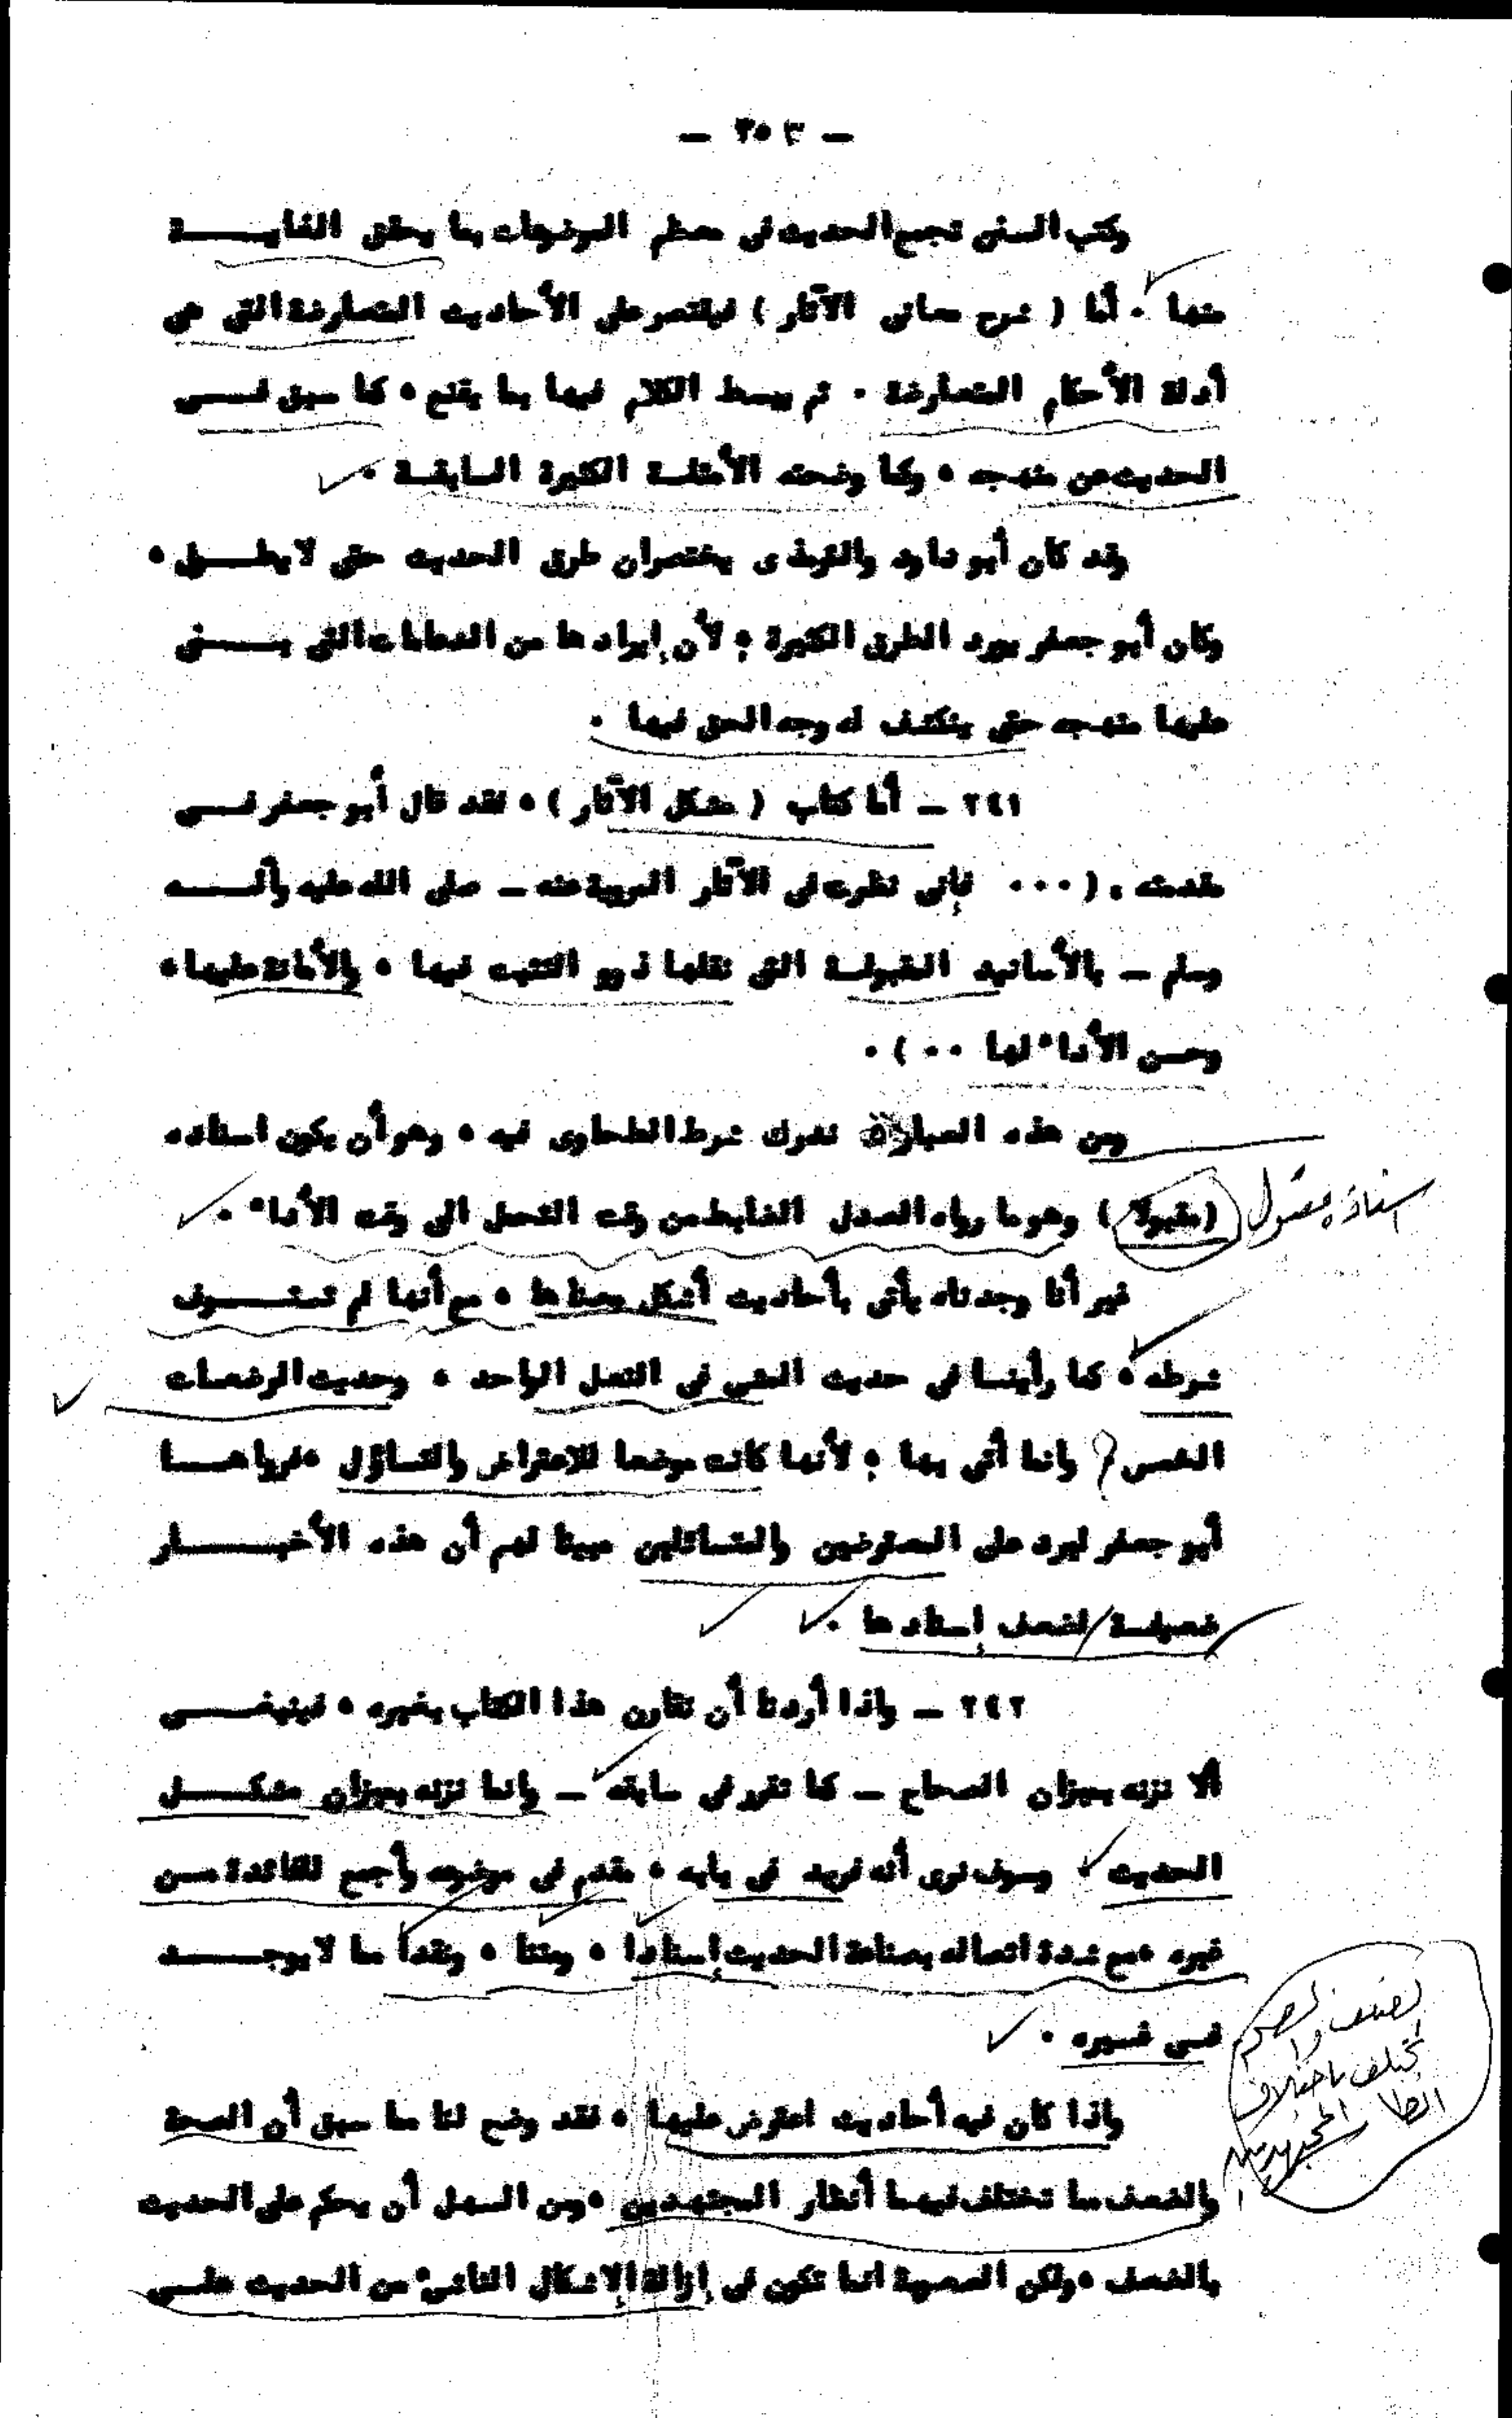 — ٣٥٣ —
وكتب السنن تجمع الحديث فى معظم الموضوعات بما يحقق الغايـــــة
منها . أما ( شرح معانى الآثار ) فيقتصر على الأحاديث المتعارضة التى هى
أدلة الأحكام المتعارضة . ثم يبسط الكلام فيها بما يقنع ، كما سبق فـــى
الحديث عن منهجه ، وكما وضحته الأمثلـة الكثيرة السابقـة .
وقد كان أبو داود والترمذى يختصران طرق الحديث حتى لا يطــول ،
وكان أبو جعفر يورد الطرق الكثيرة ؛ لأن إيرادها من الدعامات التى بـــنى
عليها منهجه حتى ينكشف له وجه الحق فيها .
٢٤١ — أما كتاب ( مشكل الآثار ) ، فقد قال أبو جعفر فـــى
مقدمته : ( ... فإنى نظرت فى الآثار المروية عنه — صلى الله عليه وآلـــه
وسلم — بالأسانيد المقبولـة التى نقلها ذوو التثبت فيها ، والأمانة عليها ،
وحسن الأداء لها .. ) .
ومن هذه العبارة ندرك شرط الطحاوى فيه ، وهو أن يكون اسناده
( مقبولا ) وهو ما رواه العدل الضابط من وقت التحمل الى وقت الأداء .
اسناده مقبول
غير أنا وجدناه يأتى بأحاديث أشكل معناها ، مع أنها لم تستـــوف
شرطه ، كما رأينـا فى حديث المشى فى النعل الواحد ، وحديث الرضعات
الخمس ، وانما أتى بها ؛ لأنها كانت موضعا للاعتراض والتساؤل ، فرواهــا
أبو جعفر ليرد على المعترضين والمتسائلين مبينا لهم أن هذه الأخبـــــار
ضعيفـة لضعف إسنادها .
٢٤٢ — واذا أردنا أن نقارن هذا الكتاب بغيره ، فينبغـــى
ألا نزنه بميزان الصحاح — كما تقرر فى سابقه — وانما نزنه بميزان مشكــل
الحديث ، وسوف نرى أنه فريد فى بابه ، مقدم فى موضوعه وأجمع للفائدة مــن
غيره ، مع شدة اتصاله بصناعة الحديث إسنادا ، ومتنا ، ونقدا مما لا يوجـــد
فـى غـيره .
واذا كان فيه أحاديث اعترض عليها ، فقد وضح لنا مما سبق أن الصحة
والضعف مما تختلف فيهما أنظار المجتهدين ، ومن السهل أن يحكم على الحديث
بالضعف ، ولكن الصعوبة انما تكون فى إزالة الإشكال الناشئ من الحديث علــى
تختلف باختلاف